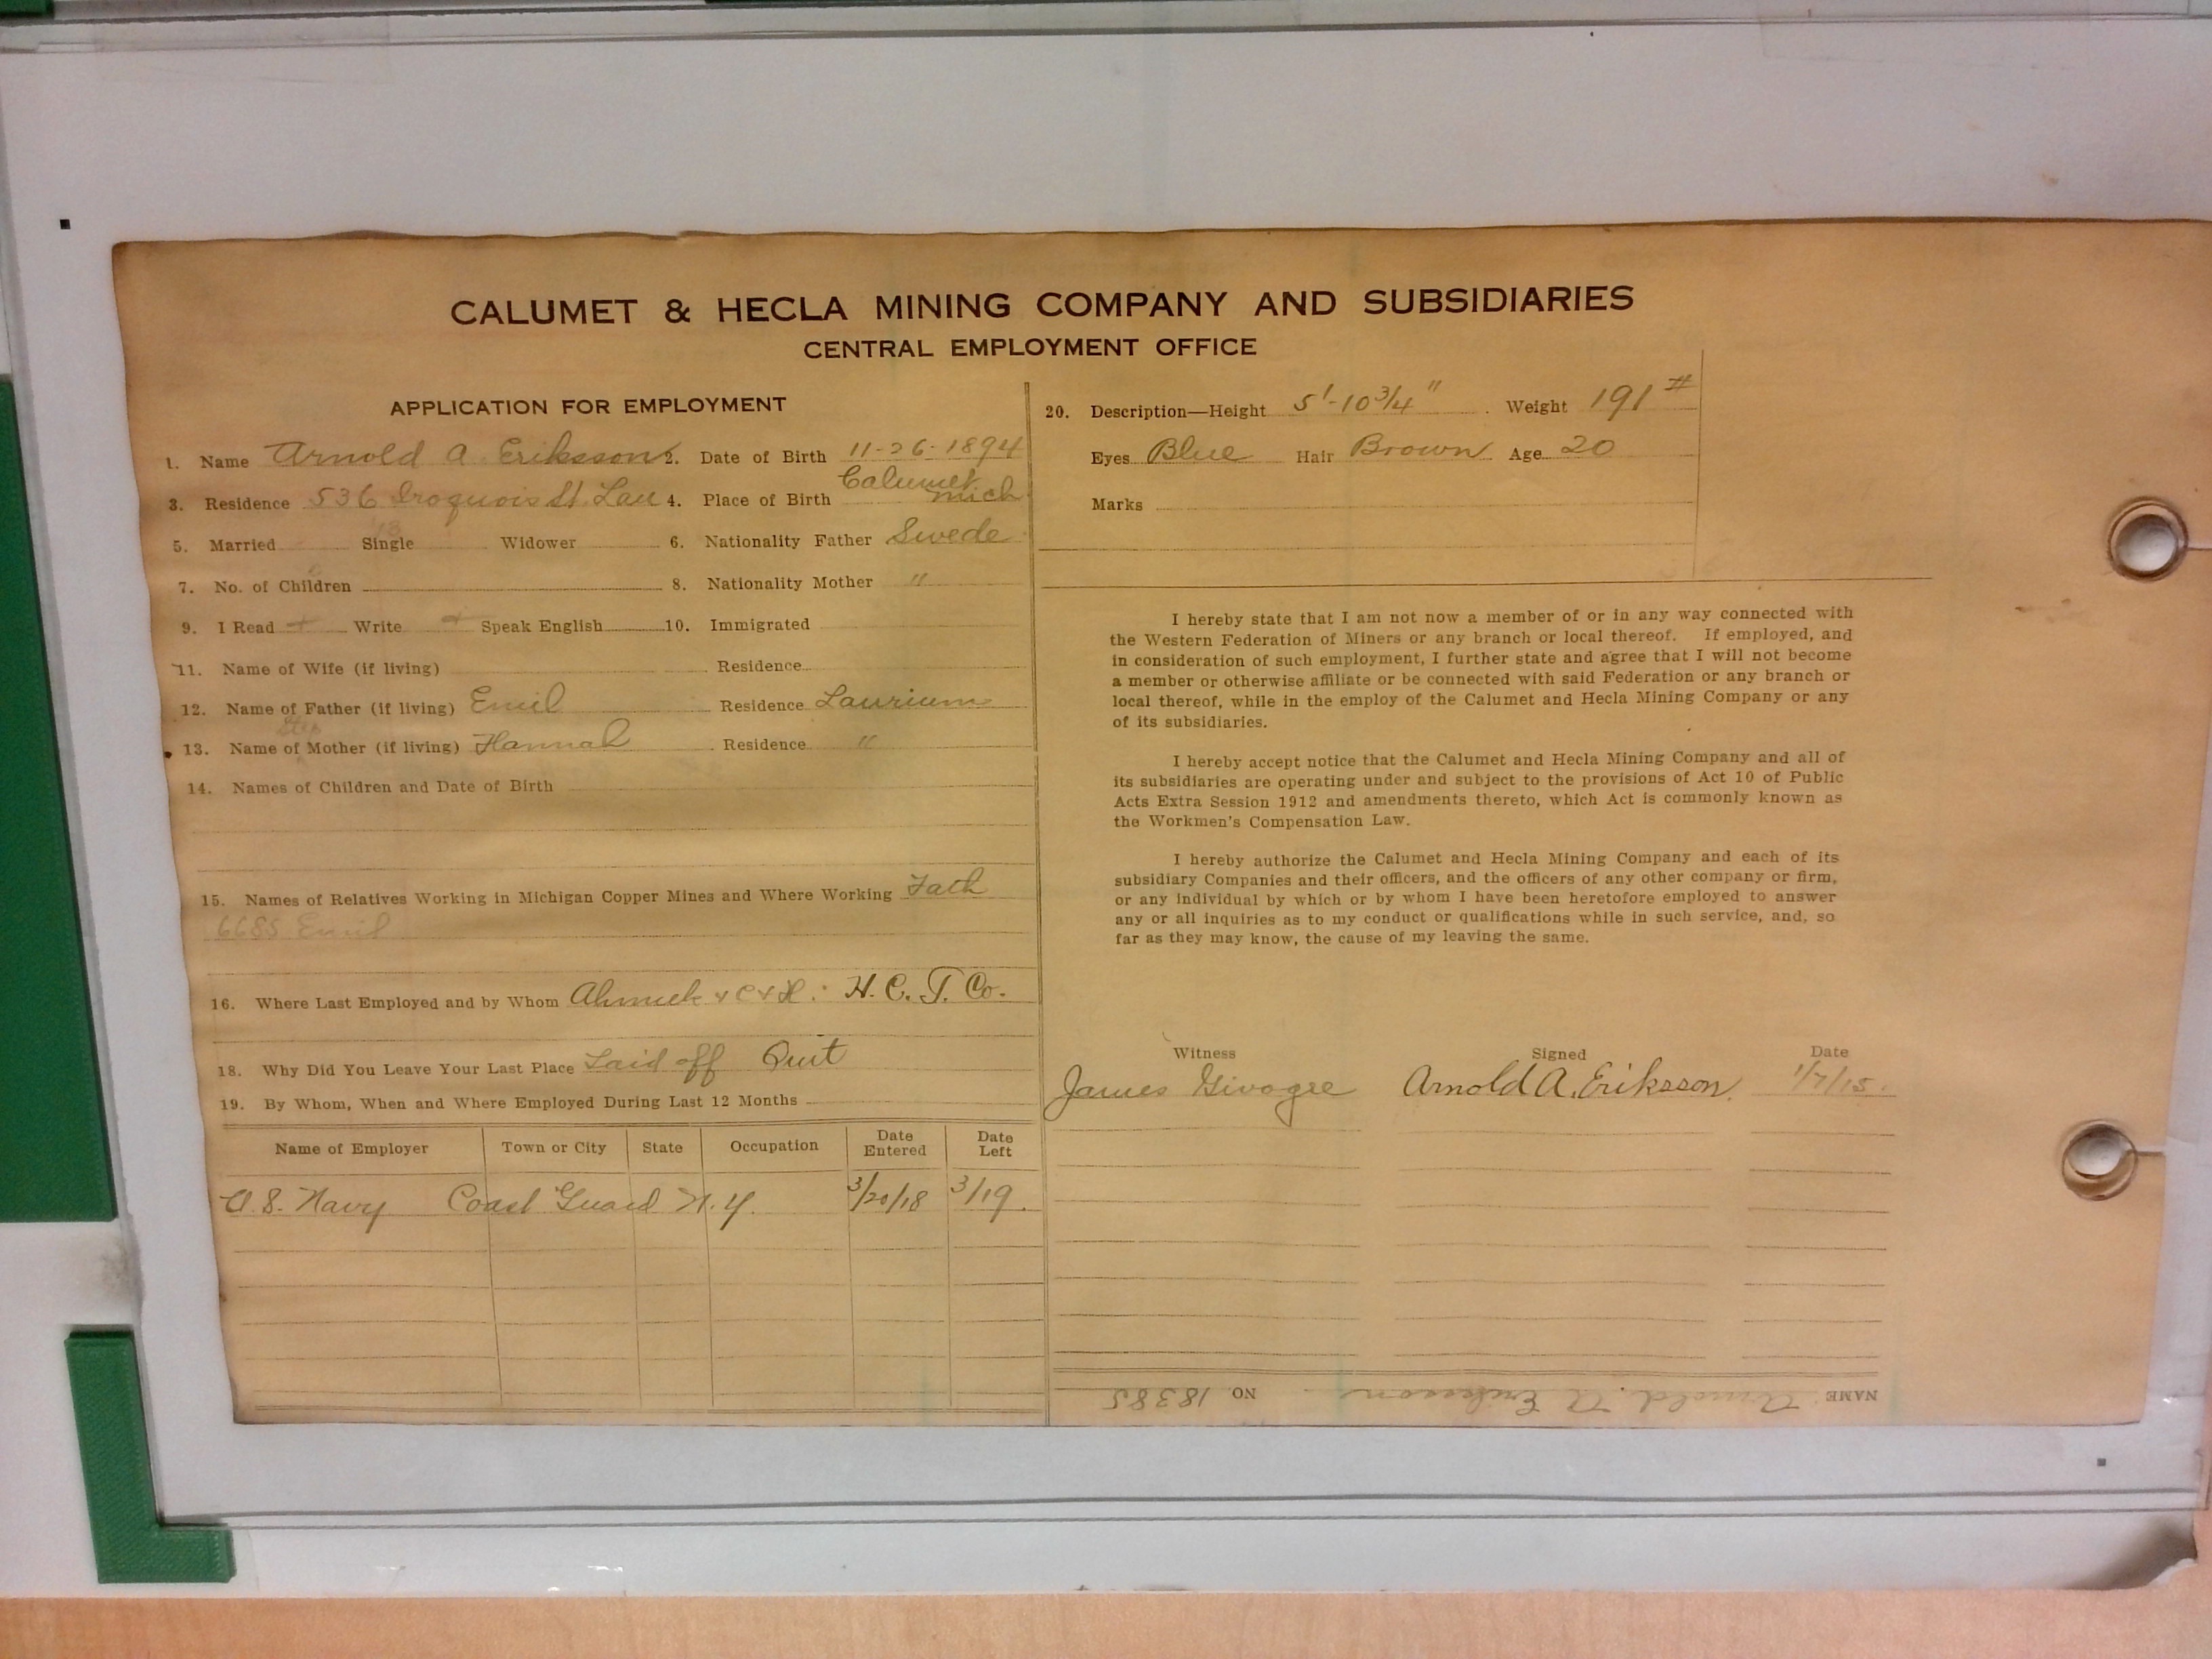 CALUMET & HECLA MINING COMPANY AND SUBSIDIARIES
CENTRAL EMPLOYMENT OFFICE
APPLICATION FOR EMPLOYMENT
1. Name Arnold A Eriksson 2. Date of Birth 11-26-1894
3. Residence 536 Iroquois St. Lau 4. Place of Birth Calumet Mich
5. Married Single Widower 6. Nationality Father Swede
7. No. of Children 8. Nationality Mother "
9. I Read + Write + Speak English 10. Immigrated
11. Name of Wife (if living) Residence
12. Name of Father (if living) Emil Residence Laurium
Step
13. Name of Mother (if living) Hannah Residence "
14. Names of Children and Date of Birth
15. Names of Relatives Working in Michigan Copper Mines and Where Working Fath
6685 Emil
16. Where Last Employed and by Whom Ahmeek + C + H. H. C. T. Co.
18. Why Did You Leave Your Last Place Laid off Quit
19. By Whom, When and Where Employed During Last 12 Months
Name of Employer Town or City State Occupation Date Entered Date Left
U.S. Navy Coast Guard N.Y. 3/20/18 3/19
20. Description—Height 5'-10 3/4" Weight 191 #
Eyes Blue Hair Brown Age 20
Marks
I hereby state that I am not now a member of or in any way connected with
the Western Federation of Miners or any branch or local thereof. If employed, and
in consideration of such employment, I further state and agree that I will not become
a member or otherwise affiliate or be connected with said Federation or any branch or
local thereof, while in the employ of the Calumet and Hecla Mining Company or any
of its subsidiaries.
I hereby accept notice that the Calumet and Hecla Mining Company and all of
its subsidiaries are operating under and subject to the provisions of Act 10 of Public
Acts Extra Session 1912 and amendments thereto, which Act is commonly known as
the Workmen's Compensation Law.
I hereby authorize the Calumet and Hecla Mining Company and each of its
subsidiary Companies and their officers, and the officers of any other company or firm,
or any individual by which or by whom I have been heretofore employed to answer
any or all inquiries as to my conduct or qualifications while in such service, and, so
far as they may know, the cause of my leaving the same.
Witness Signed Date
James Givogre Arnold A. Eriksson. 1/7/15.
NAME Arnold A Eriksson NO. 18385